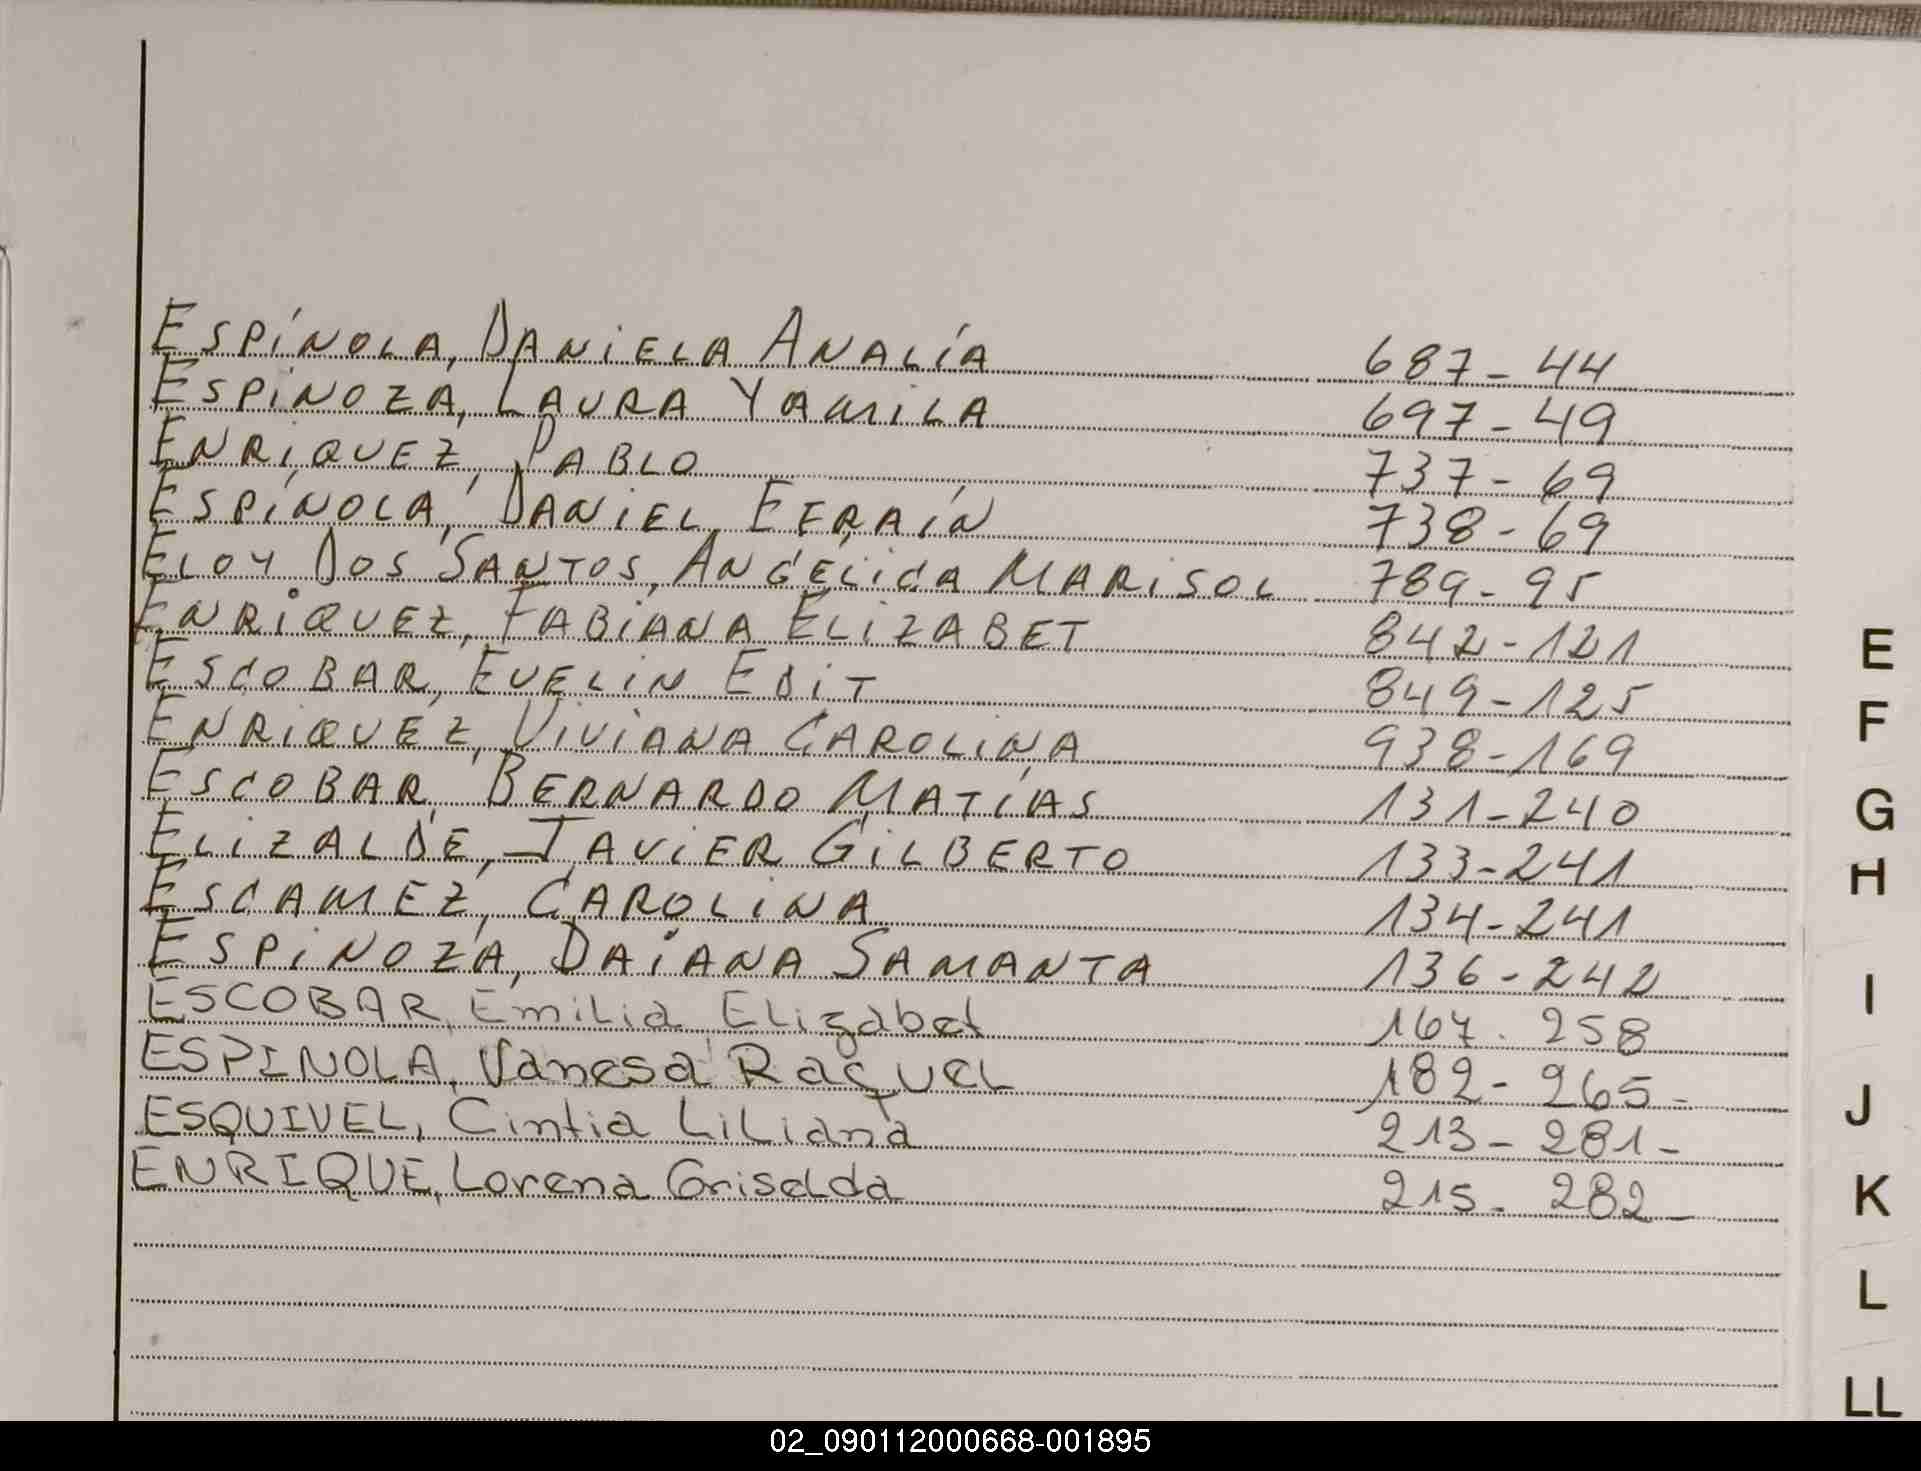 ESPÍNOLA, DANIELA ANALÍA 687 - 44
ESPINOZA, LAURA YAMILA 697 - 49
ENRIQUEZ, PABLO 737 - 69
ESPÍNOLA, DANIEL EFRAÍN 738 - 69
ELOY DOS SANTOS, ANGÉLICA MARISOL 789 - 95
ENRIQUEZ, FABIANA ELIZABET 842 - 121
ESCOBAR, EVELIN EDIT 849 - 125
ENRIQUEZ, VIVIANA CAROLINA 938 - 169
ESCOBAR, BERNARDO MATÍAS 131 - 240
ELIZALDE, JAVIER GILBERTO 133 - 241
ESCAMEZ, CAROLINA 134 - 241
ESPINOZA, DAIANA SAMANTA 136 - 242
ESCOBAR, Emilia Elizabet 167 - 258
ESPINOLA, Vanesa Raquel 182 - 265 -
ESQUIVEL, Cintia Liliana 213 - 281 -
ENRIQUE, Lorena Griselda 215 - 282 -
E
F
G
H
I
J
K
L
LL
02_090112000668-001895